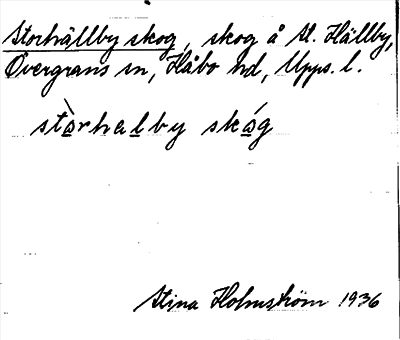 Storhällby skog, skog å St. Hällby,
Övergrans sn, Håbo hd, Upps. l.
stòrhalby skóg
Stina Holmström 1936